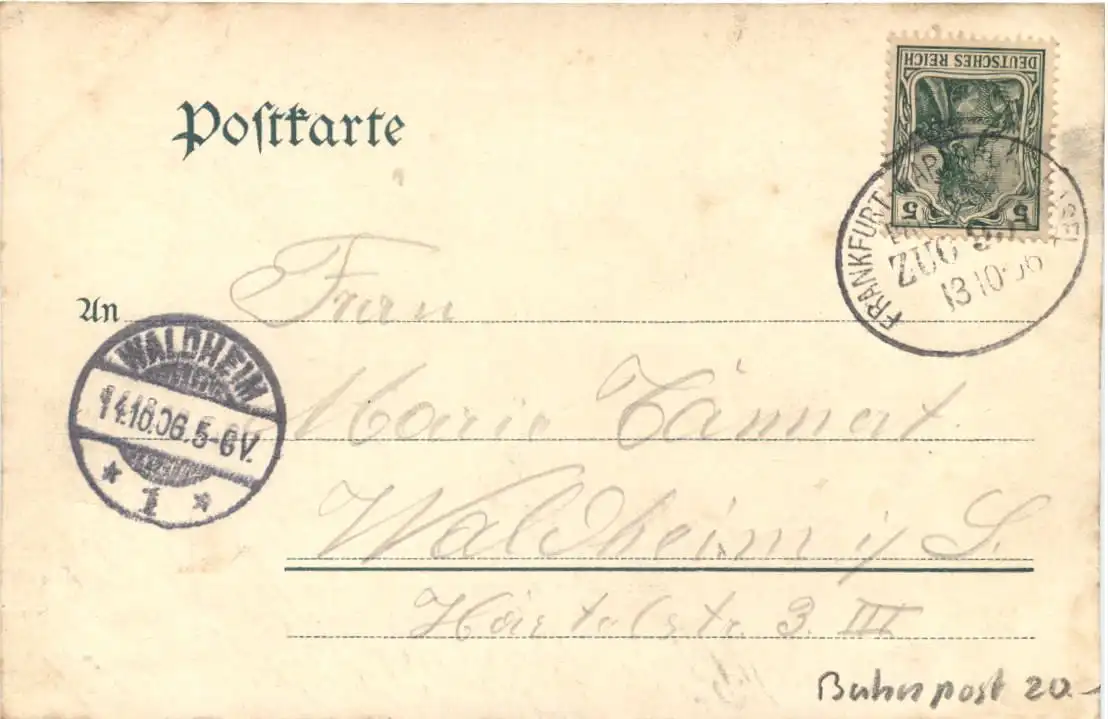 Postkarte
DEUTSCHES REICH
5 5
FRANKFURT
ZUG
13 10 06
An
Frau
WALDHEIM
14.10.06.5-6V.
* 1 *
Marie Tännert.
Waldheim i/S.
3. III
Bahnpost 20.-